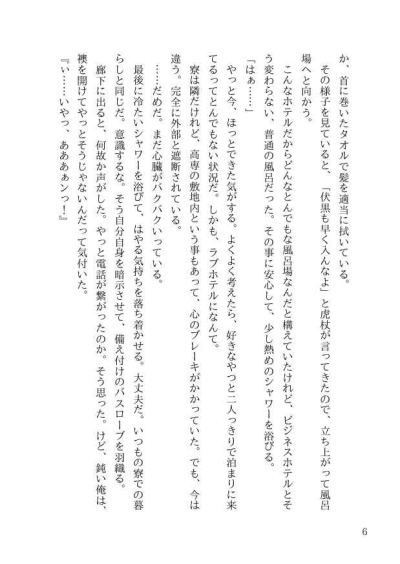 か、首に巻いたタオルで髪を適当に拭いている。
その様子を見ていると、「伏黒も早く入んなよ」と虎杖が言ってきたので、立ち上がって風呂
場へと向かう。
こんなホテルだからどんなとんでもな風呂場なんだと構えていたけれど、ビジネスホテルとそ
う変わらない、普通の風呂だった。その事に安心して、少し熱めのシャワーを浴びる。
「はぁ……」
やっと今、ほっとできた気がする。よくよく考えたら、好きなやつと二人っきりで泊まりに来
てるってとんでもない状況だ。しかも、ラブホテルになんて。
寮は隣だけれど、高専の敷地内という事もあって、心のブレーキがかかっていた。でも、今は
違う。完全に外部と遮断されている。
……だめだ。まだ心臓がバクバクいっている。
最後に冷たいシャワーを浴びて、はやる気持ちを落ち着かせる。大丈夫だ。いつもの寮での暮
らしと同じだ。意識するな。そう自分自身を暗示させて、備え付けのバスローブを羽織る。
廊下に出ると、何故か声がした。やっと電話が繋がったのか。そう思った。けど、鈍い俺は、
襖を開けてやっとそうじゃないんだって気付いた。
『ぃ……いやっ、あああぁンっ！』
6